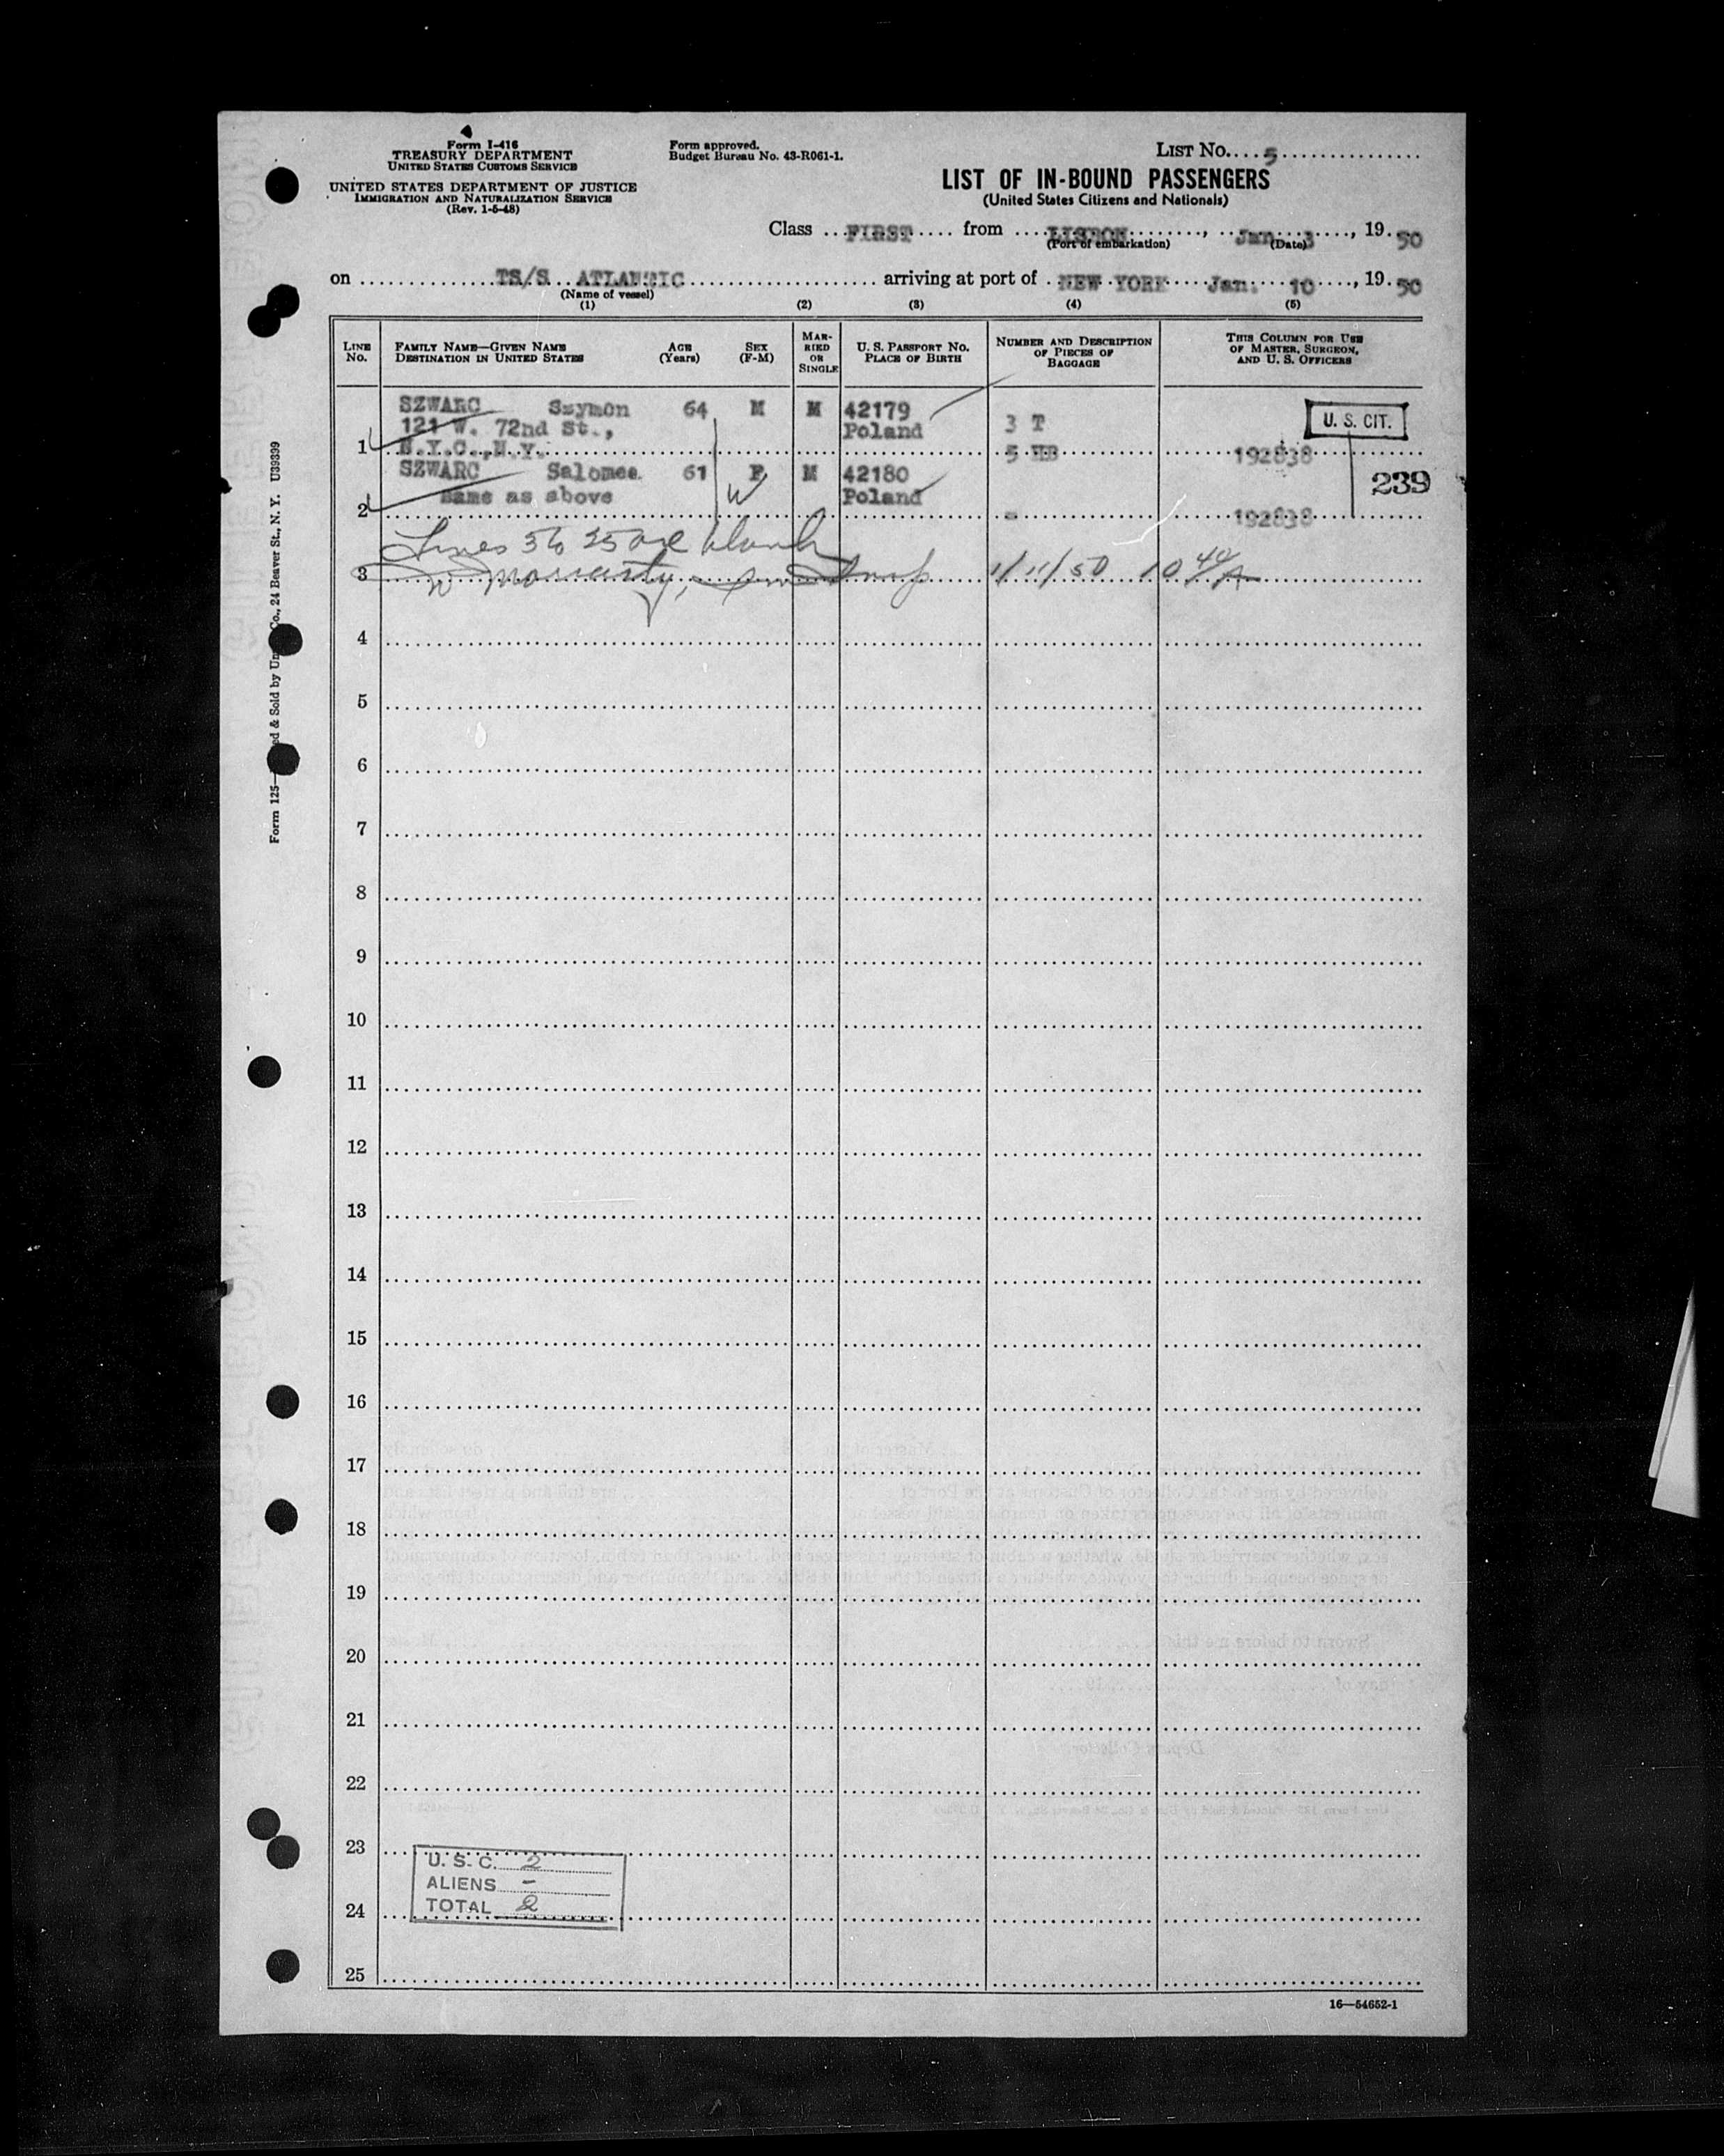 Form I-416
TREASURY DEPARTMENT
UNITED STATES CUSTOMS SERVICE
UNITED STATES DEPARTMENT OF JUSTICE
IMMIGRATION AND NATURALIZATION SERVICE
(Rev. 1-5-48)
Form approved.
Budget Bureau No. 43-R061-1.
LIST No. 5
LIST OF IN-BOUND PASSENGERS
(United States Citizens and Nationals)
Class FIRST from LISBON, Jan. 3, 19 50
(Port of embarkation) (Date)
on TS/S ATLANTIC arriving at port of NEW YORK Jan. 10, 19 50
(Name of vessel)
(1) (2) (3) (4) (5)
LINE No. FAMILY NAME—GIVEN NAME DESTINATION IN UNITED STATES AGE (Years) SEX (F-M) MARRIED OR SINGLE U. S. PASSPORT No. PLACE OF BIRTH NUMBER AND DESCRIPTION OF PIECES OF BAGGAGE THIS COLUMN FOR USE OF MASTER, SURGEON, AND U. S. OFFICERS
SZWARC Szymon 64 M M 42179 U. S. CIT.
121 W. 72nd St., Poland 3 T
1 N.Y.C.,N.Y. 5 HB 192838
SZWARC Salomea 61 F M 42180 239
same as above W Poland
2 - 192838
Lines 3 to 25 are blank
3 W Moriarty, 1/11/50 10 40 A
4
5
6
7
8
9
10
11
12
13
14
15
16
17
18
19
20
21
22
23
U. S. C. 2
ALIENS -
24 TOTAL 2
25
16—54652-1
Form 125— ed & Sold by Un Co., 24 Beaver St., N. Y. U39399